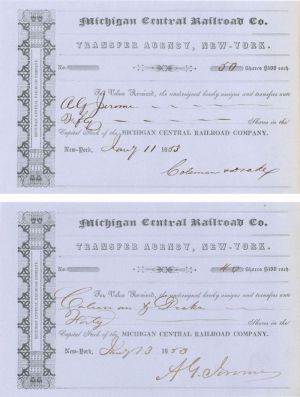 Michigan Central Railroad Co.
TRANSFER AGENCY, NEW-YORK.
No. 50 Shares $100 each
For Value Received, the undersigned hereby assigns and transfers unto
A G Jerome
Fifty Shares in the
Capital Stock of the MICHIGAN CENTRAL RAILROAD COMPANY.
New-York, Jany 11 1853
Coleman & Drake
MICHIGAN CENTRAL RAILROAD COMPANY.
Michigan Central Railroad Co.
TRANSFER AGENCY, NEW-YORK.
No. 40 Shares $100 each.
For Value Received, the undersigned hereby assigns and transfers unto
Coleman & Drake
Forty Shares in the
Capital Stock of the MICHIGAN CENTRAL RAILROAD COMPANY.
New-York, Jany 13 1853
A. G. Jerome
MICHIGAN CENTRAL RAILROAD COMPANY.